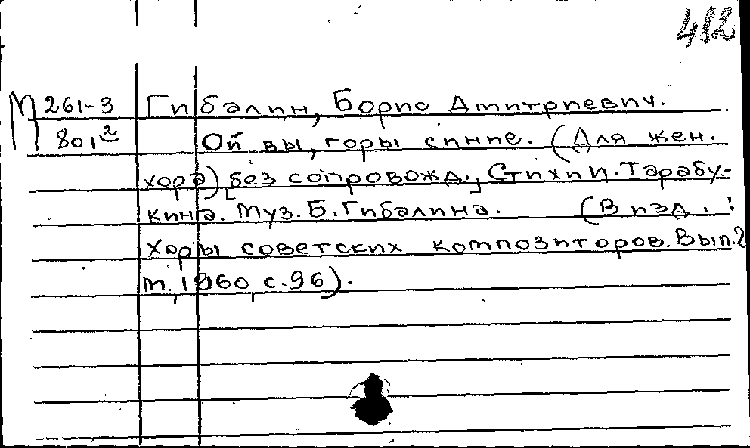 482
М 261-3 Гибалин, Борис Дмитриевич.
801² Ой вы, горы синие. (Для жен.
хора) [без сопровожд.] Стихи И. Тарабу-
кина. Муз. Б. Гибалина. (В изд.:
Хоры советских композиторов. Вып. 2
М., 1960, с. 96).